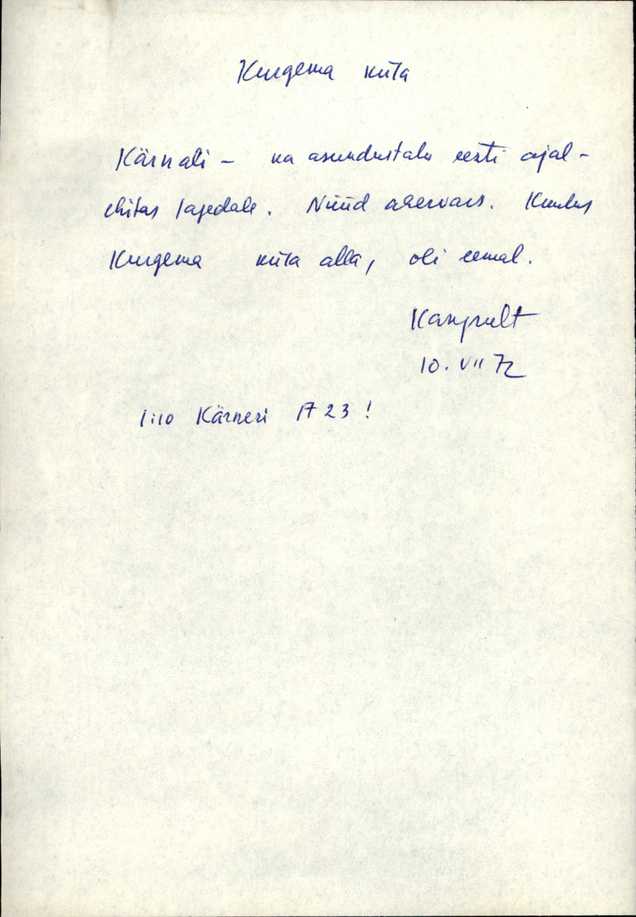 Kurgema küla
Kärnali - ka asundustalu eesti ajal -
ehitas lagedale. Nüüd ahervars. Kuulus
Kurgema küla alla, oli eemal.
10. VII 72
1:10 Kärneri 17 23!